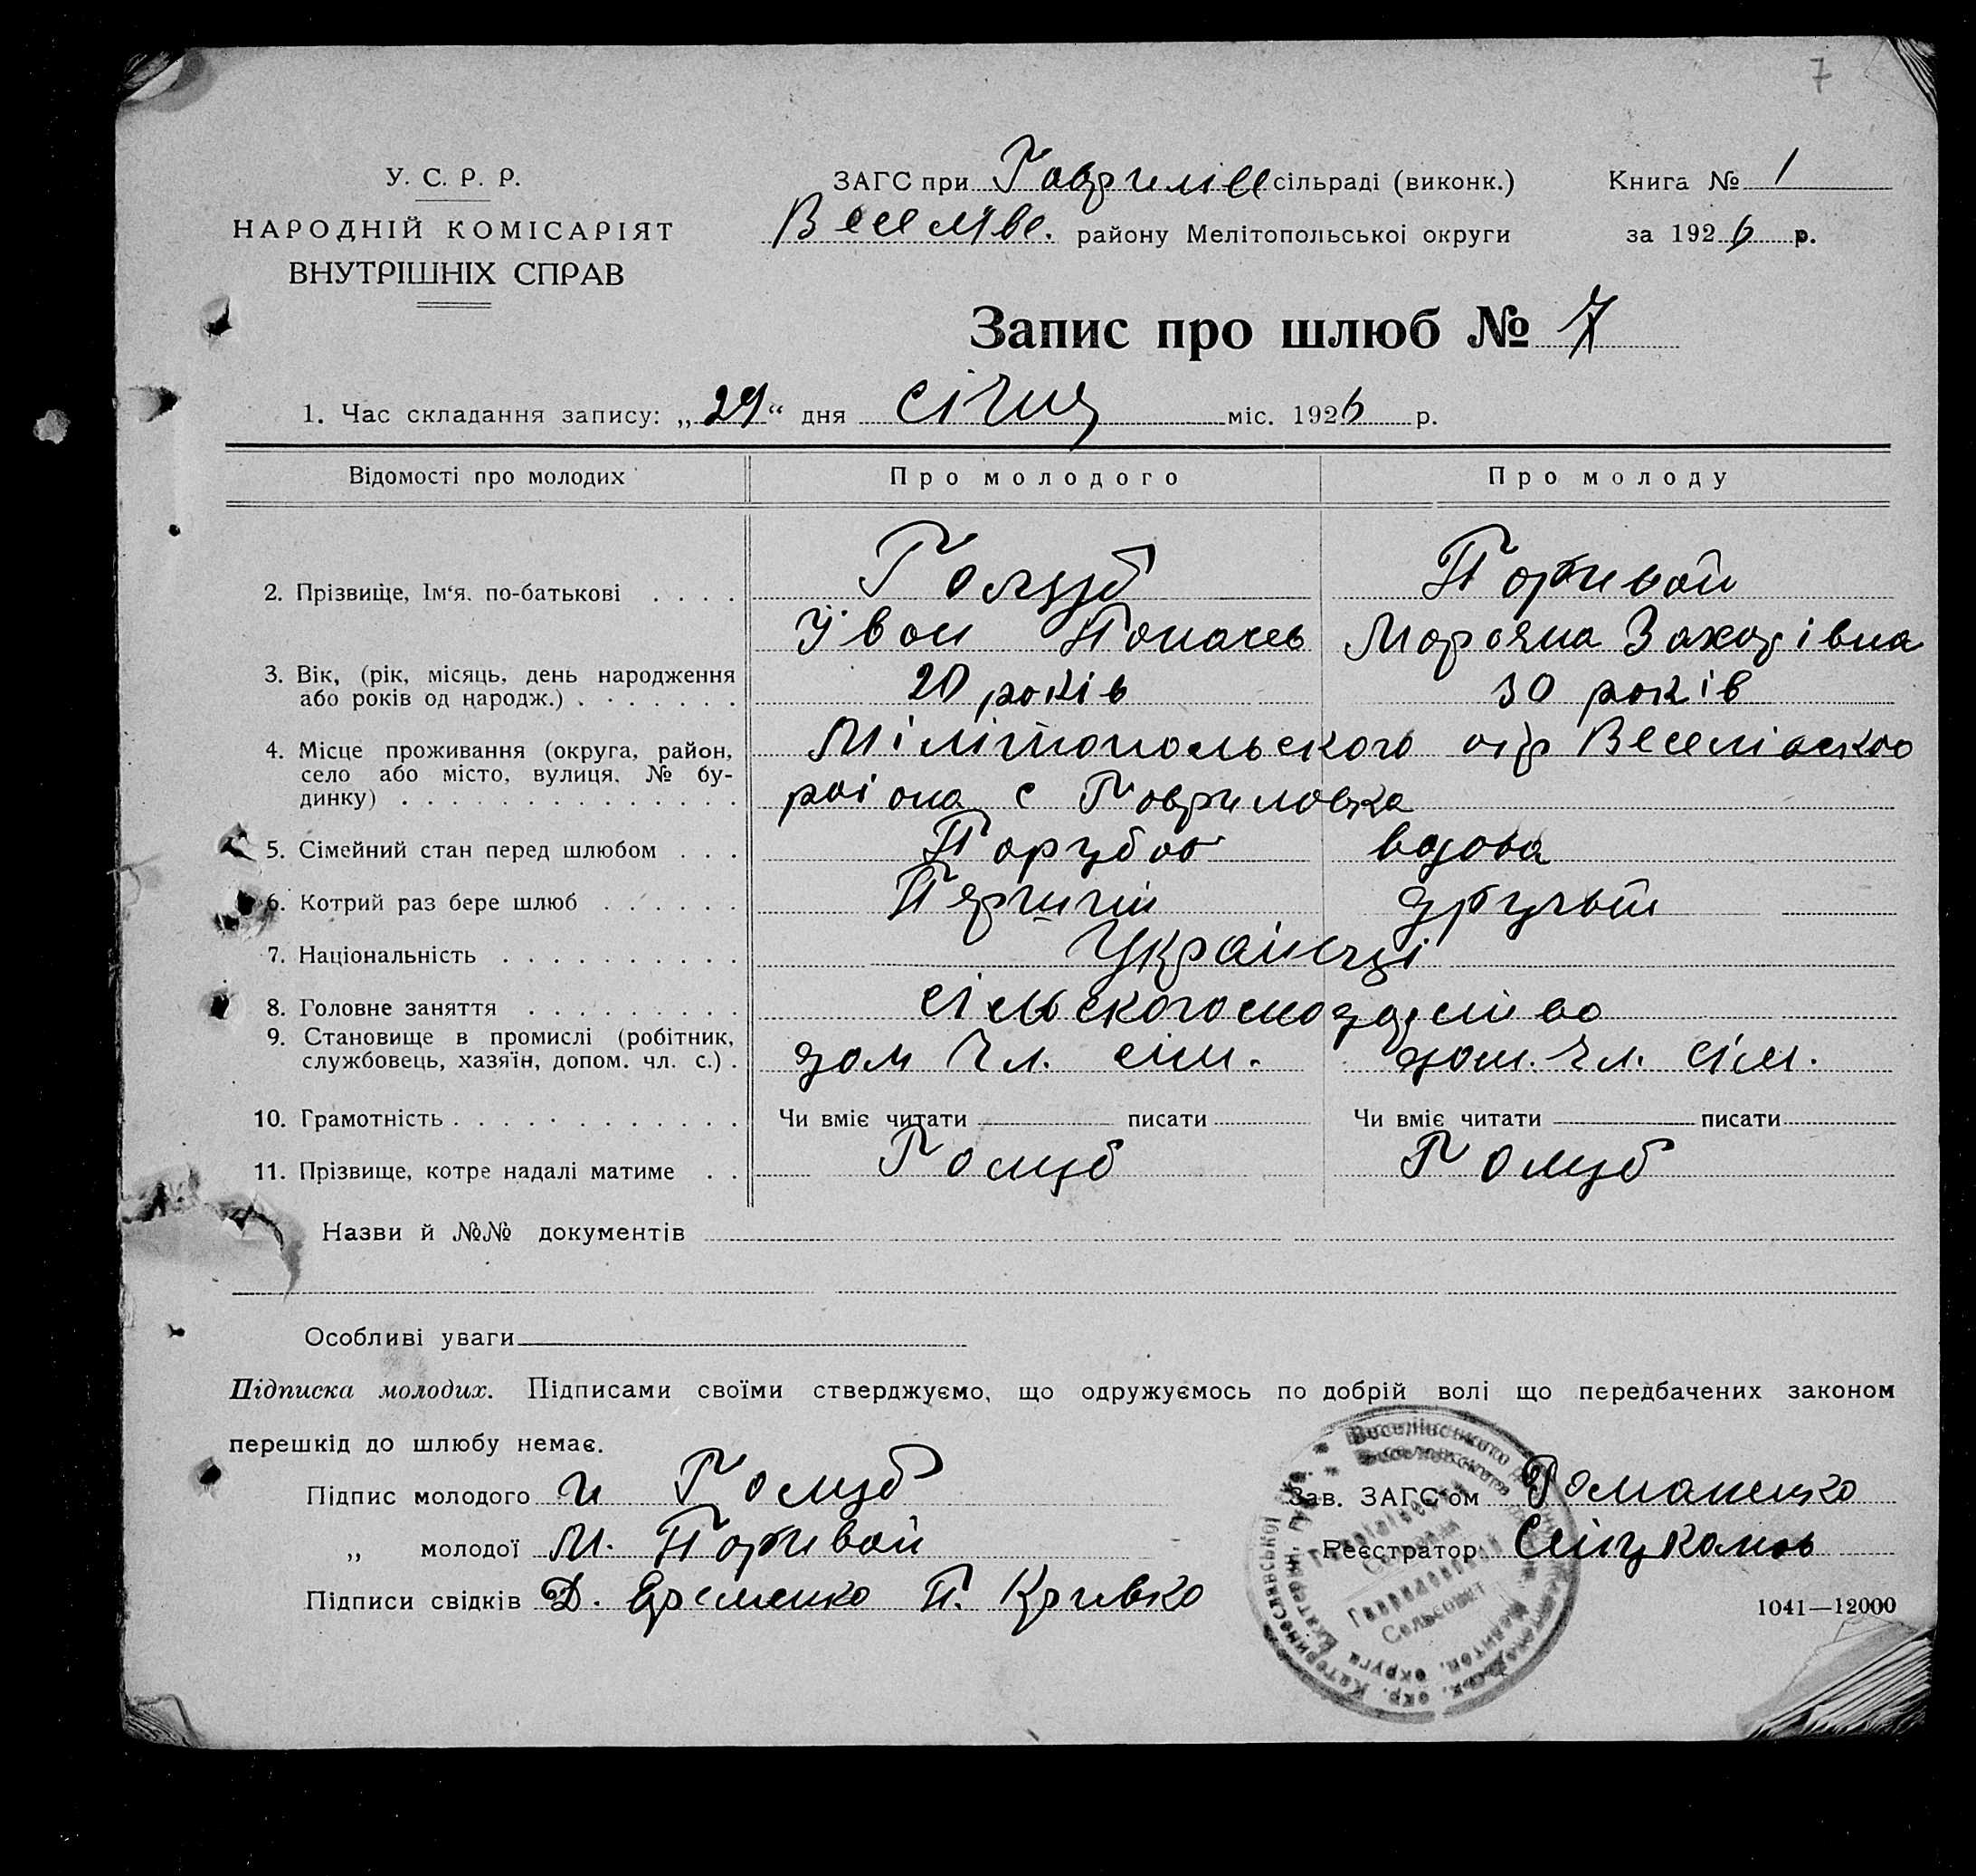 7
У. С. Р. Р.
НАРОДНІЙ КОМІСАРІЯТ
ВНУТРІШНІХ СПРАВ
ЗАГС при Гаврилівс сільраді (виконк.)
Веселівс. району Мелітопольської округи
Книга № 1
за 1926 р.
Запис про шлюб № 7
1. Час складання запису: „29“ дня січня міс. 1926 р.
Відомості про молодих Про молодого Про молоду
2. Прізвище, Ім‘я. по-батькові . . . . Голуб Поривай
Іван Панасів Марояна Захарівна
3. Вік, (рік, місяць, день народження
або років од народж.) . . . . . . . 20 років 30 років
4. Місце проживання (округа, район,
село або місто, вулиця, № бу-
динку) . . . . . . . . . . . . . .
Мілітопольского окр Веселівского
раіона с Гавриловка
5. Сімейний стан перед шлюбом . . . Парубок вдова
6. Котрий раз бере шлюб . . . . . . Перший другий
7. Національність . . . . . . . . . . Українці
8. Головне заняття . . . . . . . . . сільскогосподарство
9. Становище в промислі (робітник,
службовець, хазяїн, допом. чл. с.) . дом чл. сім. дом. чл. сім.
10. Грамотність . . . . . . . . . . . . Чи вміє читати писати Чи вміє читати писати
11. Прізвище, котре надалі матиме . . Голуб Голуб
Назви й №№ документів
Особливі уваги
Підписка молодих. Підписами своїми стверджуємо, що одружуємось по добрій волі що передбачених законом
перешкід до шлюбу немає.
Підпис молодого И Голуб
„ молодої М. Поривай
Підписи свідків Д. Єременко П. Кривко
Зав. ЗАГС‘ом Романенко
Реєстратор
1041—12000
Веселівського
Гавриловский
Сельсовет